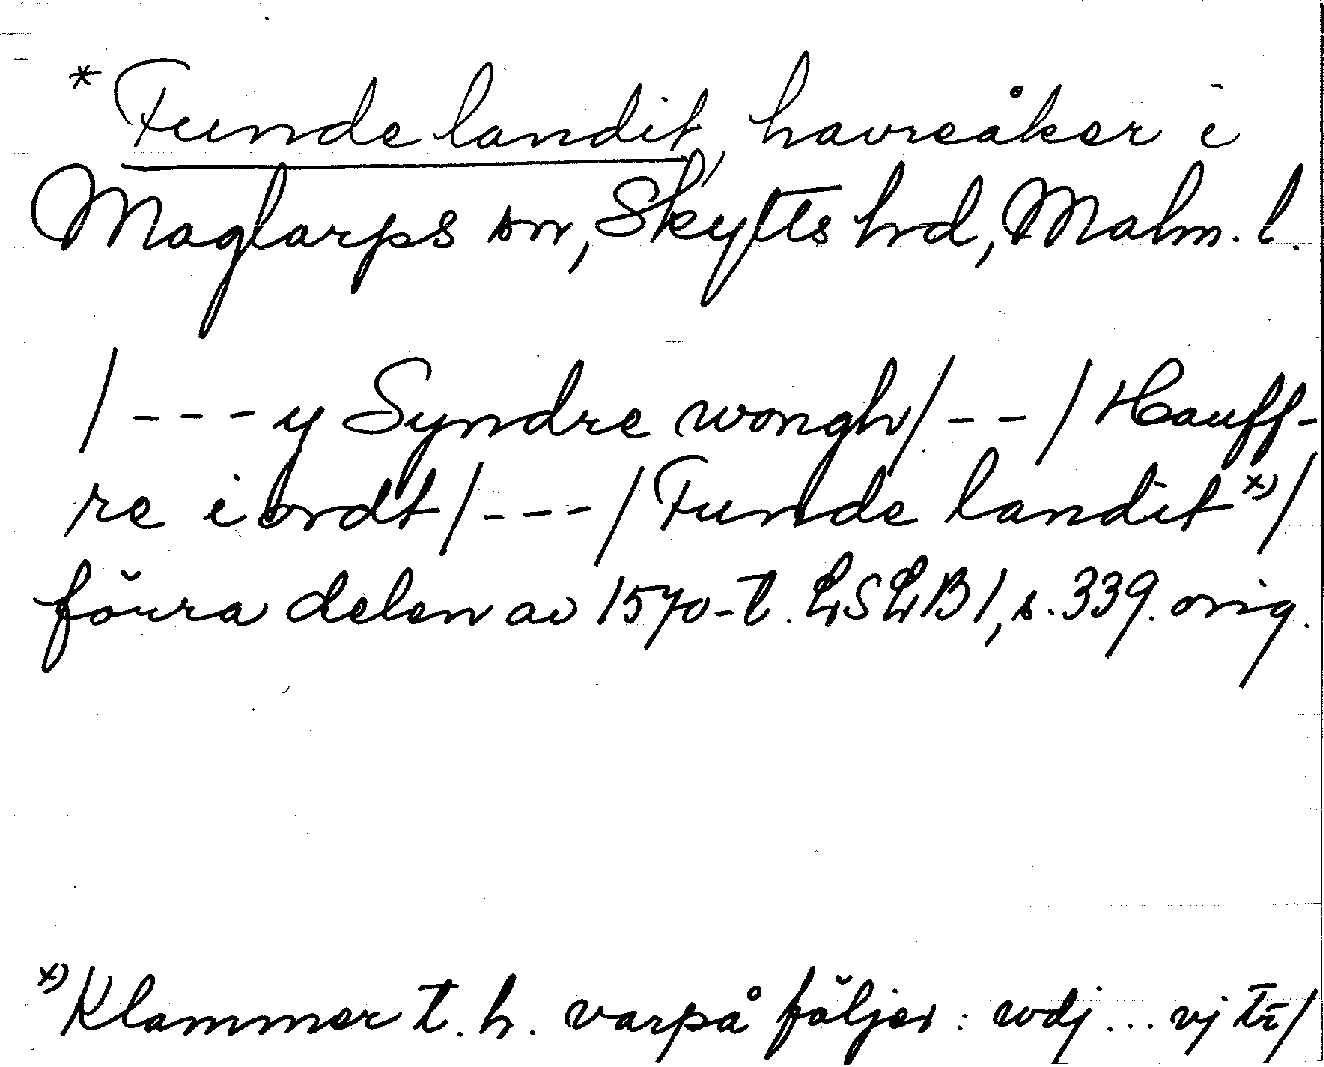 * Fundelandit, havreåker i
Maglarps sn, Skytts hd, Malm. l.
/---y Syndre wongh/--/Hauff-
re iordt/---/Funde landit x)/
förra delen av 1570-t. LSLB1, s. 339. orig.
x) Klammer t. h. varpå följer: wdj ... vj